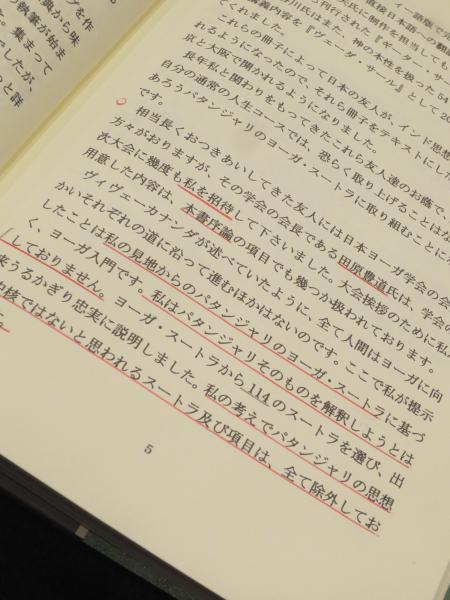 グを作
典から味
執筆が始ま
集まって
でしたが、
っと詳
ィー語版で完
直接日本語への翻訳
氏に制作を担当しても
ら刊行された『ギーター・サー
谷川氏はまた、神の本性を扱った54
講義内容を『ヴェーダ・サール』として20
てくれました。
これらの冊子によって日本の友人が、インド思想
れるようになったので、それら冊子をテキストにした
京と大阪で開かれるようになりました。
長年私と関わりをもってきたこれら友人達のお蔭で、
自分の通常の人生コースでは、恐らく取り上げることはな
あろうパタンジャリのヨーガ、スートラに取り組むことに
です。
相当長くおつきあいしてきた友人には日本ヨーガ学会の会
方々がおりますが、その学会の会長である田原豊道氏は、学会の
次大会に幾度も私を招待して下さいました。大会挨拶のために私
用意した内容は、本書序論の項目でも幾つか扱われております。
ヴィヴェーカナンダが述べていたように、全て人間はヨーガに向
かいそれぞれの道に沿って進むほかはないのです。ここで私が提示
したことは私の見地からのパタンジャリのヨーガ・スートラに基づ
く、ヨーガ入門です。私はパタンジャリそのものを解釈しようとは
しておりません。ヨーガ・スートラから114のスートラを選び、出
来うるかぎり忠実に説明しました。私の考えでパタンジャリの思想
中核ではないと思われるスートラ及び項目は、全て除外してお
5